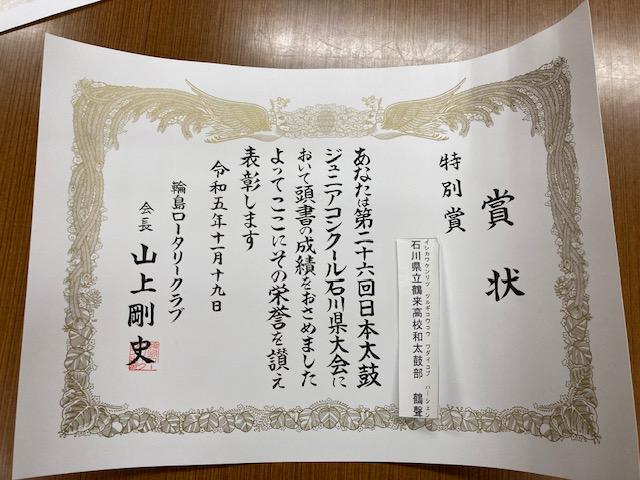 賞状
特別賞
イシカワケンリツ ツルギコウコウ ワダイコブ ハーシェン
石川県立鶴来高校和太鼓部 鶴聲
あなたは第二十六回日本太鼓
ジュニアコンクール石川県大会に
おいて頭書の成績をおさめました
よってここにその栄誉を讃え
表彰します
令和五年十一月十九日
輪島ロータリークラブ
会長 山上剛史